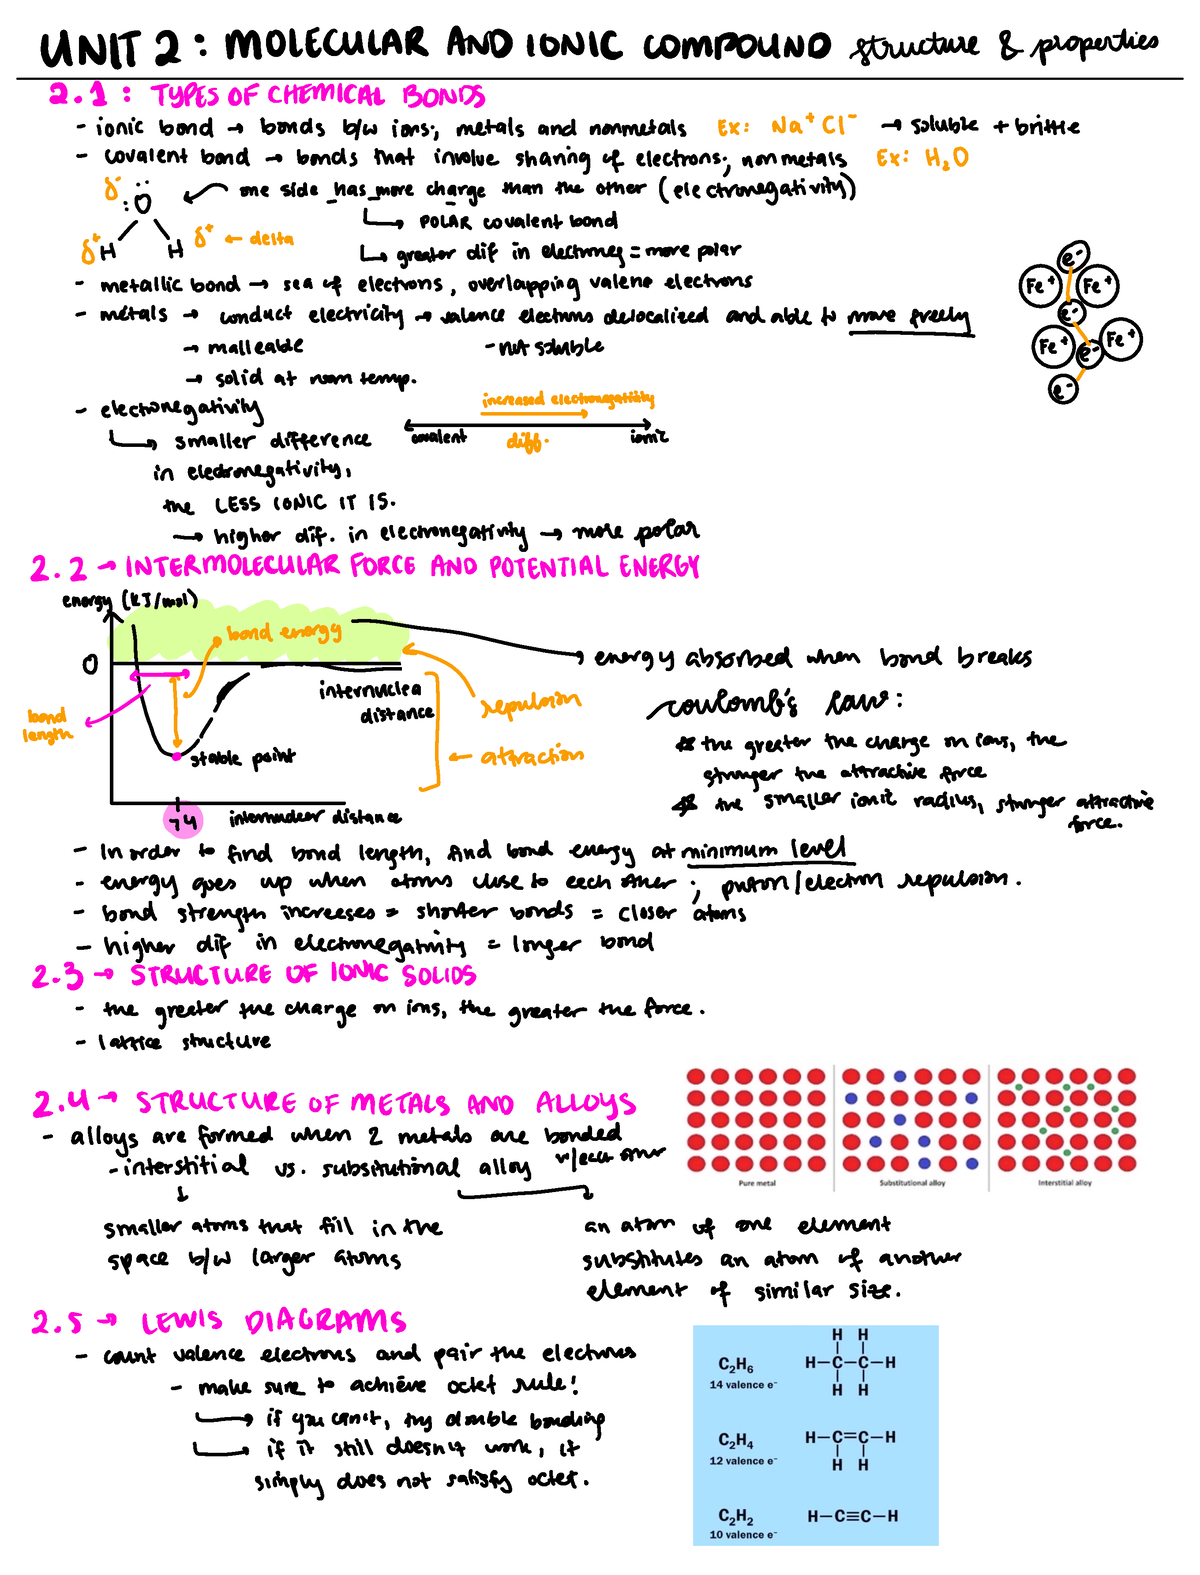 UNIT 2: MOLECULAR AND IONIC COMPOUND structure & properties
2.1: TYPES OF CHEMICAL BONDS
- ionic bond → bonds b/w ions; metals and nonmetals Ex: Na⁺Cl⁻ → soluble + brittle
- covalent bond → bonds that involve sharing of electrons; nonmetals Ex: H₂O
δ⁻ :Ö ← one side has more charge than the other (electronegativity)
↳ POLAR covalent bond
δ⁺ H H δ⁺ ← delta
↳ greater dif in electroneg = more polar
- metallic bond → sea of electrons, overlapping valene electrons
- metals → conduct electricity → valence electrons delocalized and able to move freely
→ malleable - not soluble
→ solid at room temp.
e⁻
Fe⁺ Fe⁺
e⁻
Fe⁺ e⁻ Fe⁺
e⁻
- electronegativity
increased electronegativity
covalent diff. ionic
↳ smaller difference
in electronegativity,
the LESS IONIC IT IS.
→ higher dif. in electronegativity → more polar
2.2 → INTERMOLECULAR FORCE AND POTENTIAL ENERGY
energy (kJ/mol)
bond energy
0
→ energy absorbed when bond breaks
internuclea
distance
repulsion
bond
length
stable point
← attraction
74 internuclear distance
coulomb's law:
* the greater the charge on ions, the
stronger the attractive force
* the smaller ionic radius, stronger attractive
force.
- In order to find bond length, find bond energy at minimum level
- energy goes up when atoms close to each other; proton/electron repulsion.
- bond strength increases = shorter bonds = closer atoms
- higher dif in electronegativity = longer bond
2.3 → STRUCTURE OF IONIC SOLIDS
- the greater the charge on ions, the greater the force.
- lattice structure
2.4 → STRUCTURE OF METALS AND ALLOYS
- alloys are formed when 2 metals are bonded
w/each other
- interstitial vs. subsitutional alloy
Pure metal Substitutional alloy Interstitial alloy
smaller atoms that fill in the
space b/w larger atoms
an atom of one element
substitutes an atom of another
element of similar size.
2.5 → LEWIS DIAGRAMS
- count valence electrons and pair the electrons
- make sure to achieve octet rule!
↳ if you can't, try double bonding
↳ if it still doesn't work, it
simply does not satisfy octet.
H H
C₂H₆ H—C—C—H
14 valence e⁻ H H
C₂H₄ H—C=C—H
12 valence e⁻ H H
C₂H₂ H—C≡C—H
10 valence e⁻